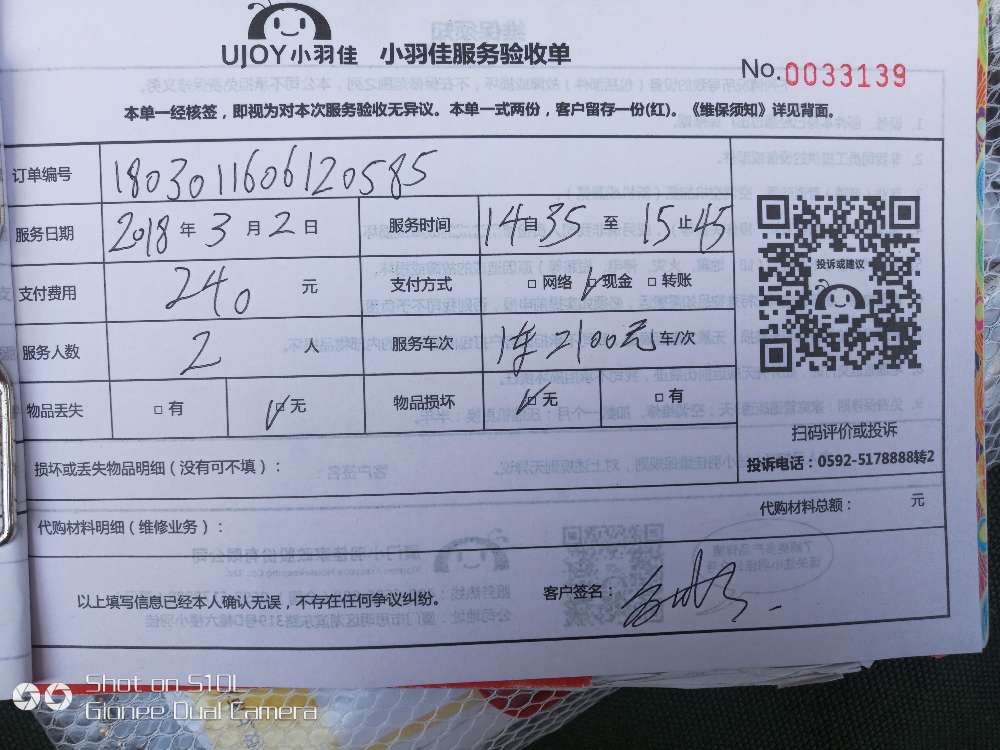 UJOY小羽佳 小羽佳服务验收单
No.0033139
本单一经核签，即视为对本次服务验收无异议。本单一式两份，客户留存一份(红)。《维保须知》详见背面。
订单编号 1803011606120585
服务日期 2018年3月2日 服务时间 14自35至15止45
支付费用 240元 支付方式 □网络 □现金 □转账
投诉或建议
服务人数 2人 服务车次 1车2100元车/次
物品丢失 □有 □无 物品损坏 □无 □有
扫码评价或投诉
投诉电话：0592-5178888转2
损坏或丢失物品明细（没有可不填）：
代购材料明细（维修业务）： 代购材料总额： 元
以上填写信息已经本人确认无误，不存在任何争议纠纷。 客户签名：
Shot on S10L
Gionee Dual Camera